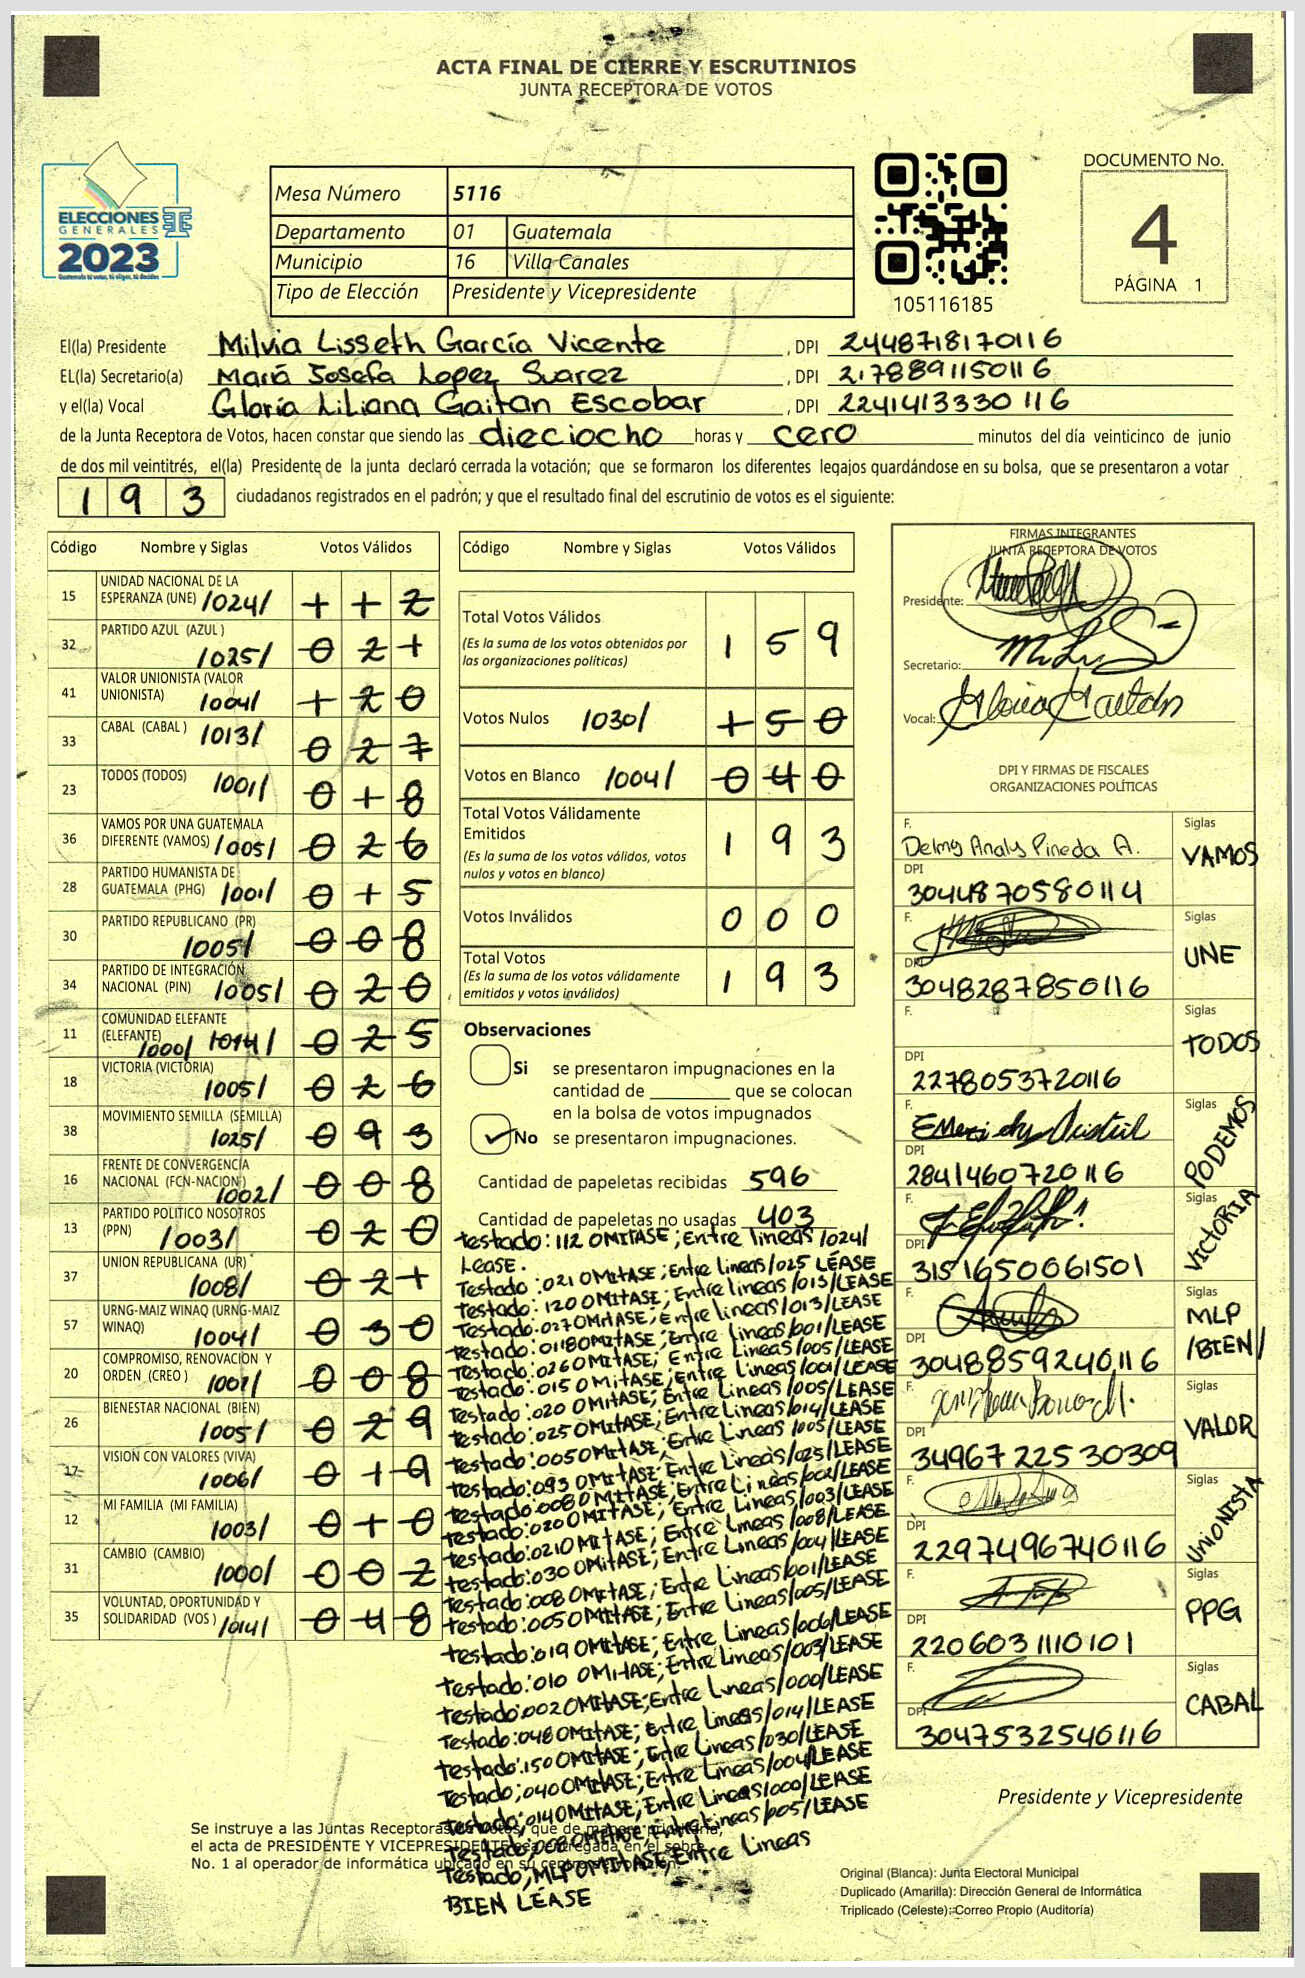 ACTA FINAL DE CIERRE Y ESCRUTINIOS
JUNTA RECEPTORA DE VOTOS
ELECCIONES
GENERALES
2023
Mesa Número 5116
Departamento 01 Guatemala
Municipio 16 Villa Canales
Tipo de Elección Presidente y Vicepresidente
105116185
DOCUMENTO No.
4
PÁGINA 1
El(la) Presidente Milvia Lisseth García Vicente , DPI 2448718170116
EL(la) Secretario(a) María Josefa Lopez Suarez , DPI 2178891150116
y el(la) Vocal Gloria Liliana Gaitan Escobar , DPI 2241413330116
de la Junta Receptora de Votos, hacen constar que siendo las dieciocho horas y cero minutos del día veinticinco de junio
de dos mil veintitrés, el(la) Presidente de la junta declaró cerrada la votación; que se formaron los diferentes legajos guardándose en su bolsa, que se presentaron a votar
193 ciudadanos registrados en el padrón; y que el resultado final del escrutinio de votos es el siguiente:
Código Nombre y Siglas Votos Válidos
15 UNIDAD NACIONAL DE LA
ESPERANZA (UNE) /024/ 112
32 PARTIDO AZUL (AZUL)
/025/ 021
41 VALOR UNIONISTA (VALOR
UNIONISTA) /004/ 120
33 CABAL (CABAL) /013/ 027
23 TODOS (TODOS) /001/ 018
36 VAMOS POR UNA GUATEMALA
DIFERENTE (VAMOS) /005/ 026
28 PARTIDO HUMANISTA DE
GUATEMALA (PHG) /001/ 015
30 PARTIDO REPUBLICANO (PR)
/005/ 008
34 PARTIDO DE INTEGRACIÓN
NACIONAL (PIN) /005/ 020
11 COMUNIDAD ELEFANTE
(ELEFANTE) /000/ /014/ 025
18 VICTORIA (VICTORIA)
/005/ 026
38 MOVIMIENTO SEMILLA (SEMILLA)
/025/ 093
16 FRENTE DE CONVERGENCIA
NACIONAL (FCN-NACION) /002/ 008
13 PARTIDO POLITICO NOSOTROS
(PPN) /003/ 020
37 UNION REPUBLICANA (UR)
/008/ 021
57 URNG-MAIZ WINAQ (URNG-MAIZ
WINAQ) /004/ 030
20 COMPROMISO, RENOVACION Y
ORDEN (CREO) /001/ 008
26 BIENESTAR NACIONAL (BIEN)
/005/ 029
17 VISION CON VALORES (VIVA)
/006/ 019
12 MI FAMILIA (MI FAMILIA)
/003/ 010
31 CAMBIO (CAMBIO)
/000/ 002
35 VOLUNTAD, OPORTUNIDAD Y
SOLIDARIDAD (VOS) /014/ 048
Código Nombre y Siglas Votos Válidos
Total Votos Válidos 159
(Es la suma de los votos obtenidos por
las organizaciones políticas)
Votos Nulos /030/ 150
Votos en Blanco /004/ 040
Total Votos Válidamente
Emitidos 193
(Es la suma de los votos válidos, votos
nulos y votos en blanco)
Votos Inválidos 000
Total Votos 193
(Es la suma de los votos válidamente
emitidos y votos inválidos)
Observaciones
Si se presentaron impugnaciones en la
cantidad de ________ que se colocan
en la bolsa de votos impugnados
No se presentaron impugnaciones.
Cantidad de papeletas recibidas 596
Cantidad de papeletas no usadas 403
testado: 112 OMITASE; Entre lineas /024/
LEASE.
Testado: 021 OMITASE; Entre lineas /025 LÉASE
Testado: 120 OMITASE; Entre lineas /013/LEASE
Testado: 027 OMITASE; Entre lineas /013/LEASE
Testado: 0118 OMITASE; Entre lineas /001/LEASE
Testado: 026 OMITASE; Entre Lineas /005/LEASE
Testado: 015 OMITASE; Entre Lineas /001/LEASE
Testado: 020 OMITASE; Entre Lineas /005/LEASE
Testado: 025 OMITASE; Entre Lineas /014/LEASE
Testado: 005 OMITASE; Entre Lineas /005/LEASE
Testado: 093 OMITASE; Entre Lineas /025/LEASE
Testado: 008 OMITASE; Entre Lineas /002/LEASE
Testado: 020 OMITASE; Entre Lineas /003/LEASE
Testado: 021 OMITASE; Entre Lineas /008/LEASE
Testado: 030 OMITASE; Entre Lineas /004/LEASE
Testado: 008 OMITASE; Entre Lineas /001/LEASE
Testado: 005 OMITASE; Entre Lineas /005/LEASE
Testado: 019 OMITASE; Entre Lineas /006/LEASE
Testado: 010 OMITASE; Entre Lineas /003/LEASE
Testado: 002 OMITASE; Entre Lineas /000/LEASE
Testado: 048 OMITASE; Entre Lineas /014/LEASE
Testado: 150 OMITASE; Entre Lineas /030/LEASE
Testado: 040 OMITASE; Entre Lineas /004/LEASE
Testado: 014 OMITASE; Entre Lineas /000/LEASE
Testado: 008 OMITASE Entre Lineas /005/LEASE
Testado, MLP OMITASE, Entre Lineas
BIEN LÉASE
FIRMAS INTEGRANTES
JUNTA RECEPTORA DE VOTOS
Presidente:
Secretario:
Vocal: Gloria Gaitan
DPI Y FIRMAS DE FISCALES
ORGANIZACIONES POLÍTICAS
F. Delmy Analy Pineda A. Siglas
DPI 3044870580114 VAMOS
F. Siglas
DPI 3048287850116 UNE
F. Siglas
DPI 2278053720116 TODOS
F. Siglas
DPI 2841460720116 PODEMOS
F. Siglas
DPI 3151650061501 VICTORIA
F. Siglas
DPI 3048859240116 MLP /BIEN/
F. Siglas
DPI 3496722530309 VALOR
F. Siglas
DPI 2297496740116 UNIONISTA
F. Siglas
DPI 2206031110101 PPG
F. Siglas
DPI 3047532540116 CABAL
Presidente y Vicepresidente
Se instruye a las Juntas Receptoras de Votos, que de manera prioritaria,
el acta de PRESIDENTE Y VICEPRESIDENTE sea entregada en el sobre
No. 1 al operador de informática ubicado en su centro
Original (Blanca): Junta Electoral Municipal
Duplicado (Amarilla): Dirección General de Informática
Triplicado (Celeste): Correo Propio (Auditoría)